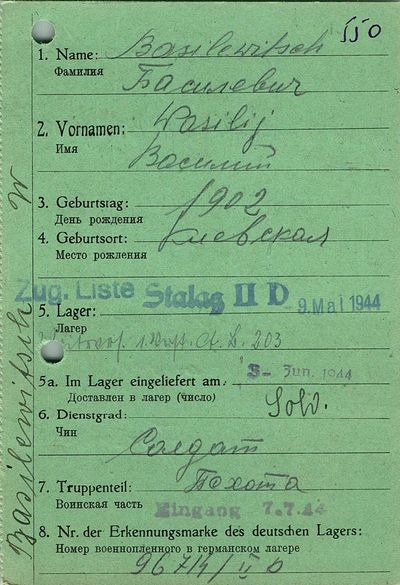 550
1. Name: Basilewitsch
Фамилия
Басилевич
2. Vornamen: Wasilij
Имя
Василий
3. Geburtstag: 1902
День рождения
4. Geburtsort: Киевская
Место рождения
Zug. Liste Stalag II D 9. Mai 1944
5. Lager:
Лагер
203
5a. Im Lager eingeliefert am: 3- Jun. 1944
Доставлен в лагер (число)
6. Dienstgrad: Sold.
Чин
Солдат
7. Truppenteil: Пехота
Воинская часть Eingang 7.7.44
8. Nr. der Erkennungsmarke des deutschen Lagers:
Номер военнопленного в германском лагере
Basilewitsch W